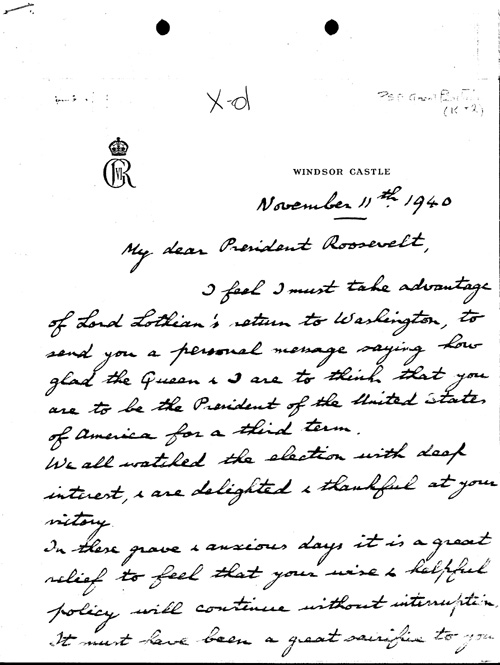 X-d
(K+Q)
GRVI
WINDSOR CASTLE
November 11th. 1940
My dear President Roosevelt,
I feel I must take advantage
of Lord Lothian's return to Washington, to
send you a personal message saying how
glad the Queen & I are to think that you
are to be the President of the United States
of America for a third term.
We all watched the election with deep
interest, & are delighted & thankful at your
victory.
In these grave & anxious days it is a great
relief to feel that your wise & helpful
policy will continue without interruption.
It must have been a great sacrifice to you